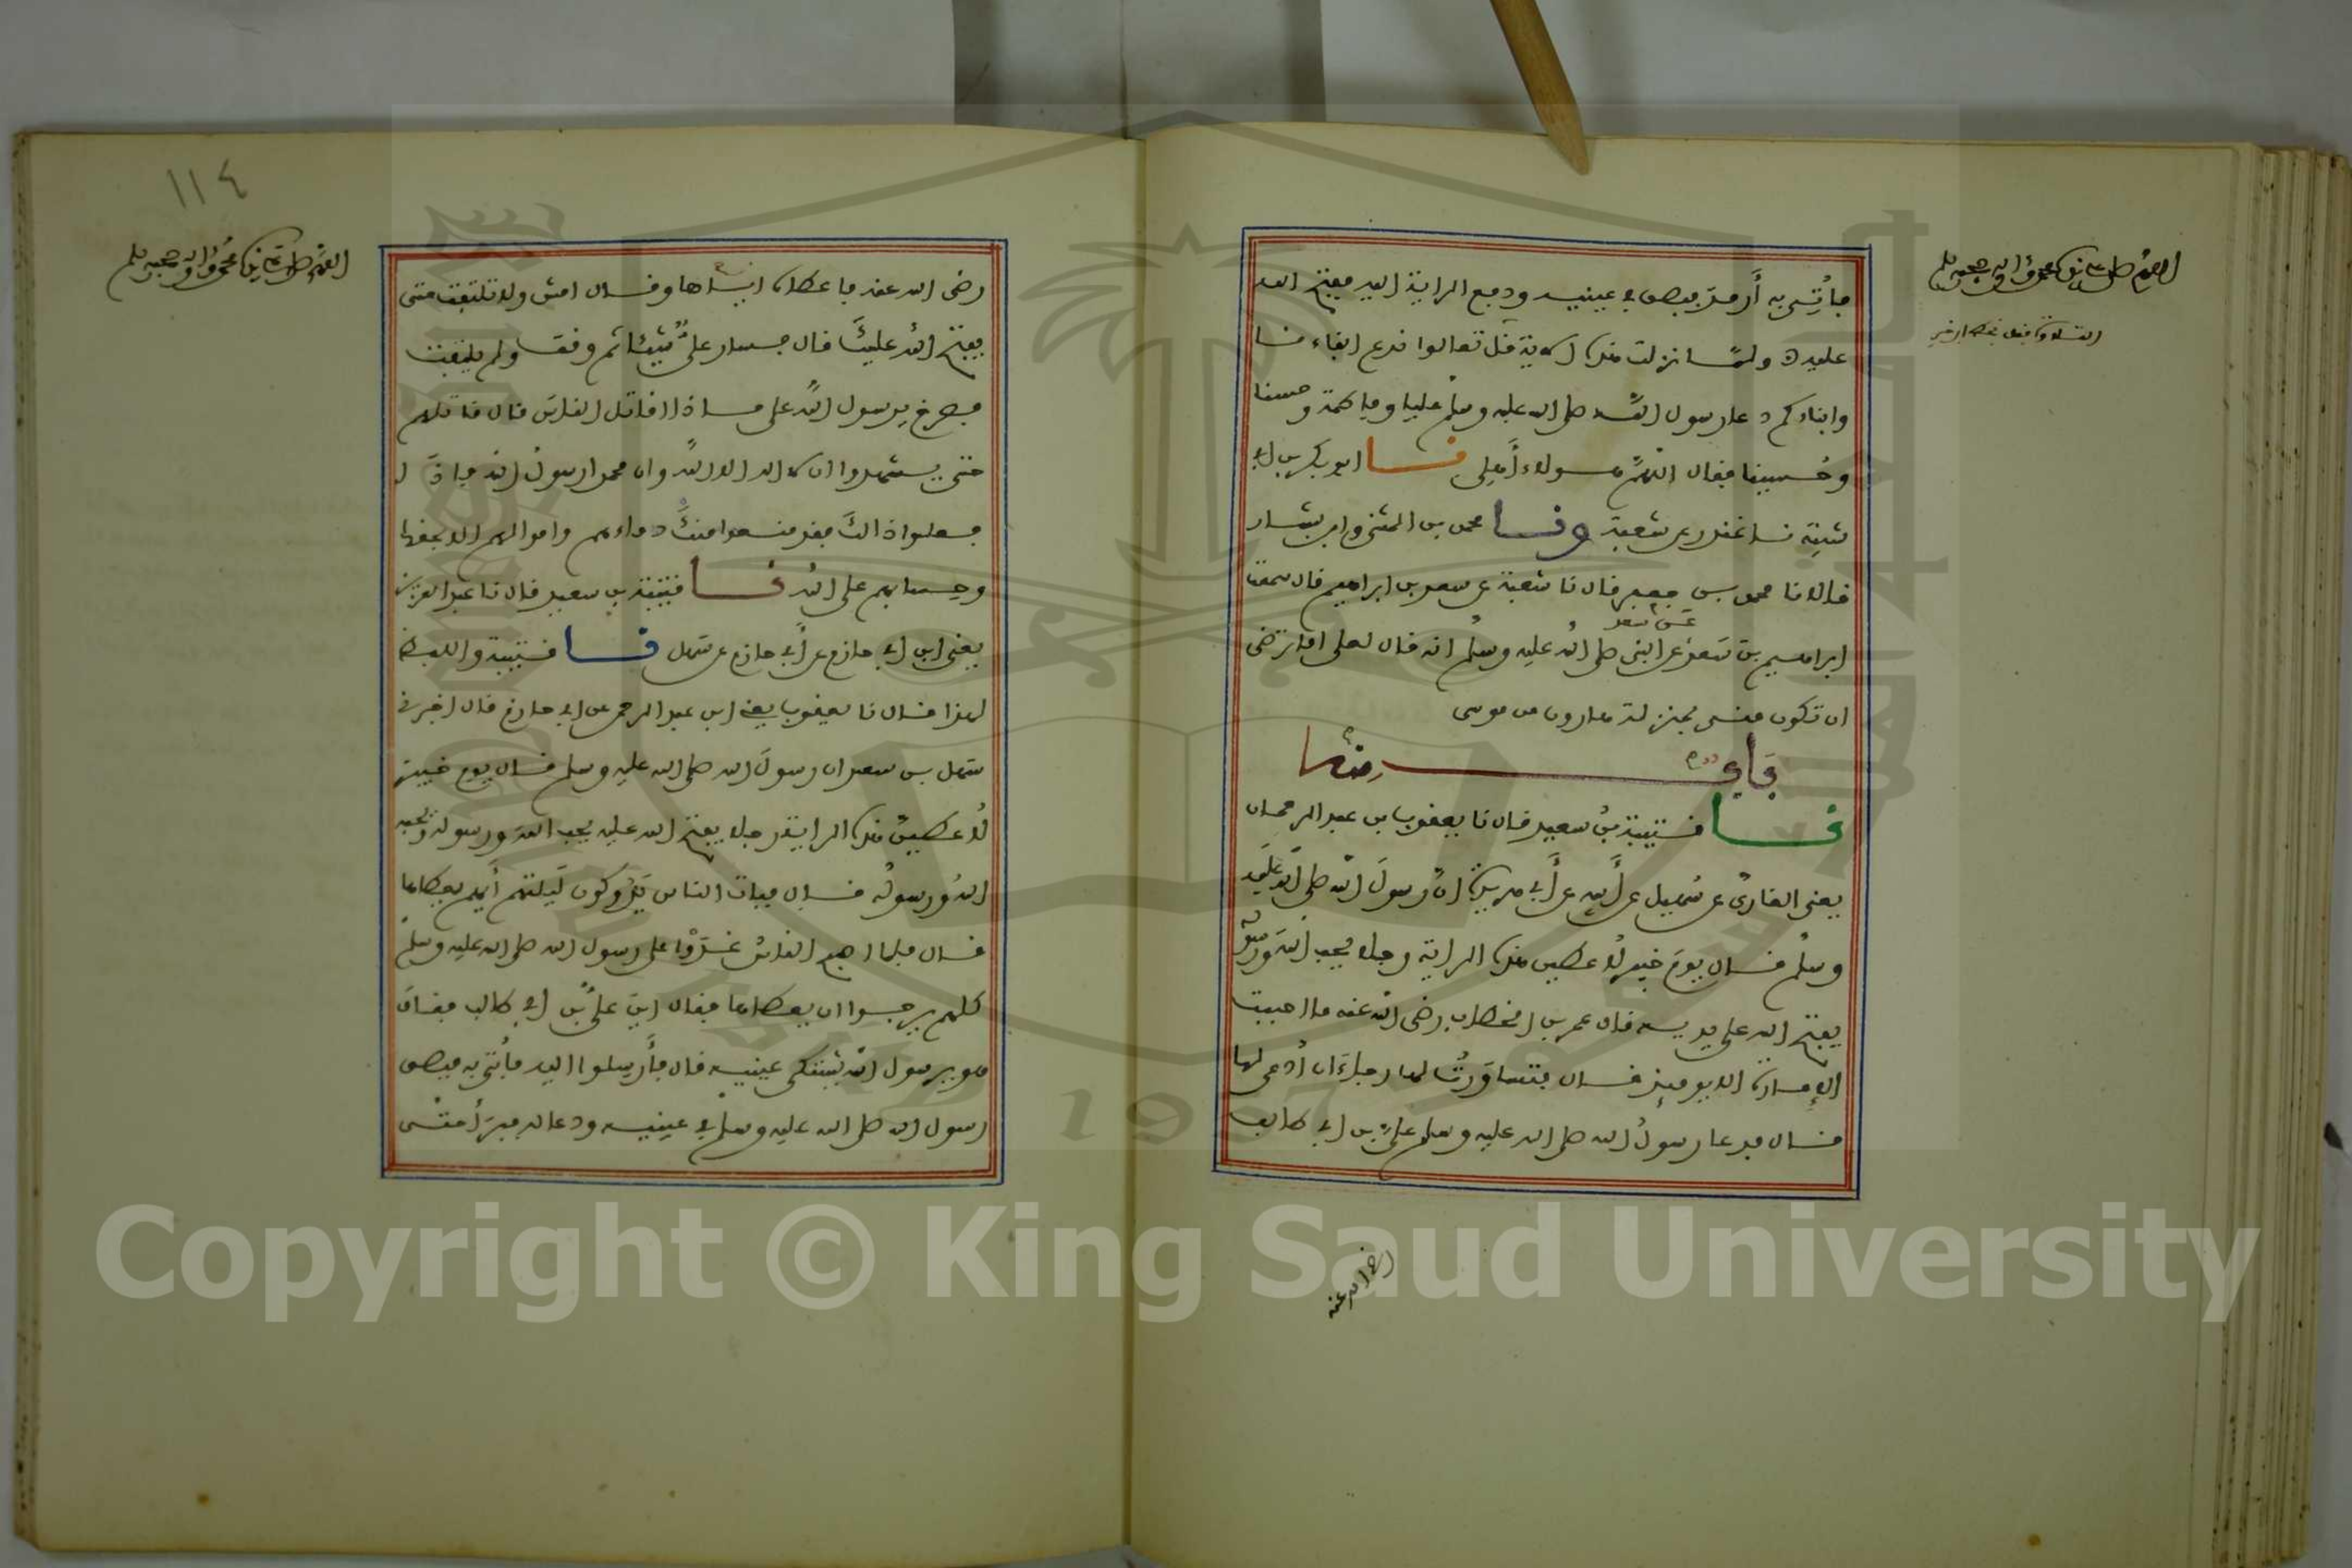 فأتي به أرمد فبصق في عينيه ودفع الراية إليه ففتح الله
عليه ولما نزلت هذه الآية قل تعالوا ندع ابناءنا
وابناءكم دعا رسول الله صلى الله عليه وسلم عليا وفاطمة وحسنا
وحسينا فقال اللهم هولاء أهلي نا ابو بكر بن ابي
شيبة نا غندر عن شعبة ونا محمد بن المثنى وابن بشار
قالا نا محمد بن جعفر قال نا شعبة عن سعد بن ابراهيم قال سمعت
ابراهيم بن سعد عن سعد عن النبي صلى الله عليه وسلم انه قال لعلي اما ترضى
ان تكون مني بمنزلة هارون من موسى
باب منه
نا قتيبة بن سعيد قال نا يعقوب بن عبد الرحمان
يعني القاري عن سهيل عن أبيه عن أبي هريرة ان رسول الله صلى الله عليه
وسلم قال يوم خيبر لأعطين هذه الراية رجلا يحب الله ورسوله
يفتح الله على يديه قال عمر بن الخطاب رضي الله عنه ما احببت
الإمارة الا يومئذ قال فتساورت لها رجاء ان أدعى لها
قال فدعا رسول الله صلى الله عليه وسلم علي بن ابي طالب
رضي الله عنه
١١٤
رضي الله عنه فاعطاه اياها وقال امش ولا تلتفت حتى
يفتح الله عليك قال فسار علي شيئا ثم وقف ولم يلتفت
فصرخ يرسول الله على ماذا اقاتل الناس قال قاتلهم
حتى يشهدوا ان لا اله الا الله وان محمدا رسول الله فإذا
فعلوا ذالك فقد منعوا منك دماءهم واموالهم الا بحقها
وحسابهم على الله نا قتيبة بن سعيد قال نا عبد العزيز
يعني ابن ابي حازم عن أبي حازم عن سهل نا قتيبة واللفظ
لهذا قال نا يعقوب يعني ابن عبد الرحمن عن ابي حازم قال اخبرني
سهل بن سعد ان رسول الله صلى الله عليه وسلم قال يوم خيبر
لأعطين هذه الراية رجلا يفتح الله عليه يحب الله ورسوله ويحبه
الله ورسوله قال فبات الناس يدوكون ليلتهم أيهم يعطاها
قال فلما اصبح الناس غدوا على رسول الله صلى الله عليه وسلم
كلهم يرجوا ان يعطاها فقال اين علي بن ابي طالب فقال
هو يرسول الله يشتكي عينيه قال فأرسلوا اليه فأتي به فبصق
رسول الله صلى الله عليه وسلم في عينيه ودعا له فبرأ حتى
Copyright © King Saud University
1957